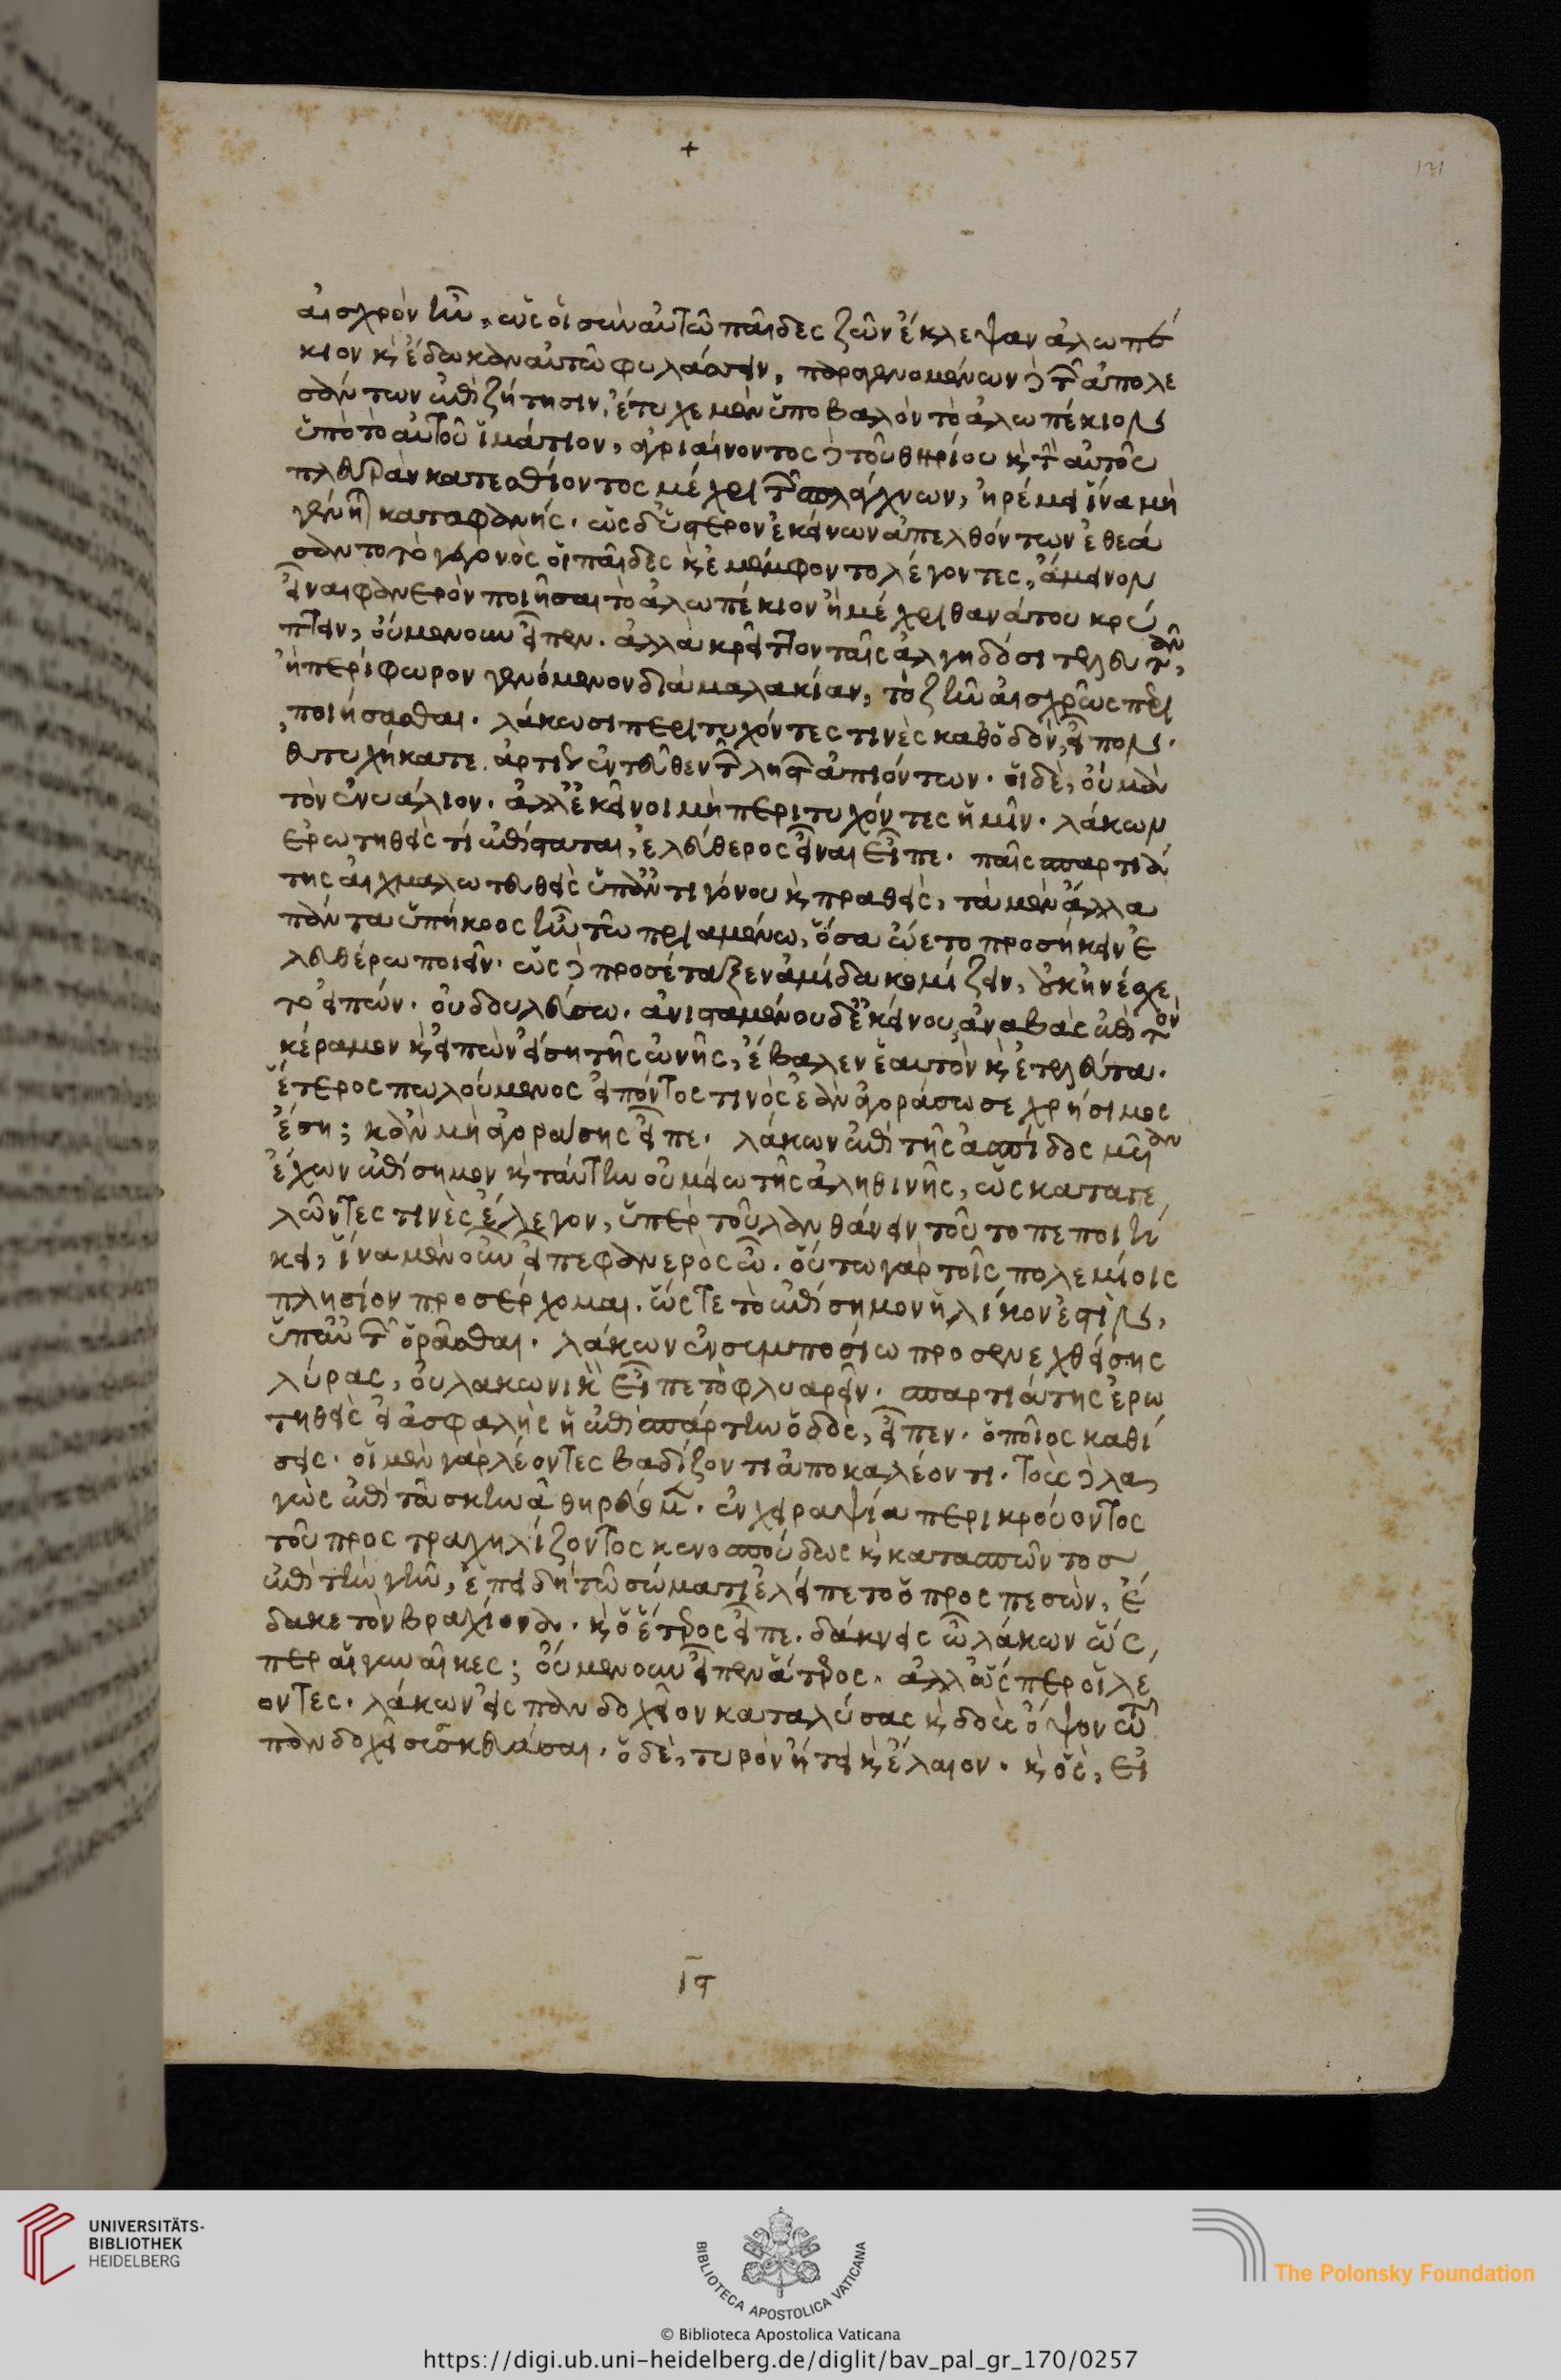 +
131
αἰσχρὸν ἦν, ὡς οἱ σὺν αὐτῶ παῖδες ζῶν ἔκλεψαν ἀλωπέ
κιον κ(αὶ) ἔδωκαν αὐτῶ φυλάττειν, παραγενομένων δὲ τῶν ἀπολε
σάντων ἐπὶ ζήτησιν, ἔτυχε μὲν ὑποβαλὸν τὸ ἀλωπέκιον
ὑπὸ τὸ αὐτοῦ ἱμάτιον, ἀγριαίνοντος δὲ τοῦ θηρίου κ(αὶ) τὴν αὐτοῦ
πλευρὰν κατεσθίοντος μέχρι τῶν σπλάγχνων, ἠρέμει ἵνα μὴ
γένηται καταφανής. ὡς δ' ὕστερον ἐκείνων ἀπελθόντων ἐθεά
σαντο τὸ γεγονὸς οἱ παῖδες κ(αὶ) ἐμέμφοντο λέγοντες, ἄμεινον
εἶναι φανερὸν ποιῆσαι τὸ ἀλωπέκιον ἢ μέχρι θανάτου κρύ
πτειν, οὐμενοῦν εἶπεν. ἀλλὰ κρεῖττον ταῖς ἀλγηδόσι τελευτᾶν,
ἢ περίφωρον γενόμενον διὰ μαλακίαν, τὸ ζῆν αἰσχρῶς περι
ποιήσασθαι. λάκωσι περιτυχόντες τινὲς καθ' ὁδὸν, εἶπον.
εὐτυχήκατε ἀρτίως ἐντεῦθεν τῶν ληστῶν ἀπιόντων. οἱ δὲ, οὐ μὰ
τὸν ἐνυάλιον. ἀλλ' ἐκεῖνοι μὴ περιτυχόντες ἡμῖν. λάκων
ἐρωτηθεὶς τί ἐπίσταται, ἐλεύθερος εἶναι εἶπε. παῖς σπαρτιά
της αἰχμαλωτευθεὶς ὑπ' ἀντιγόνου κ(αὶ) πραθεὶς, τὰ μὲν ἄλλα
πάντα ὑπήκοος ἦν τῶ πριαμένω, ὅσα ὤετο προσήκειν ἐ
λευθέρω ποιεῖν. ὡς δὲ προσέταξεν ἀμίδα κομίζειν, οὐκ ἠνέσχε
το εἰπών. οὐ δουλεύσω. ἀνισταμένου δ' ἐκείνου, ἀναβὰς ἐπὶ τὸν
κέραμον κ(αὶ) εἰπὼν εἴση τῆς ὠνῆς, ἔβαλεν ἑαυτὸν κ(αὶ) ἐτελεύτα.
ἕτερος πωλούμενος εἰπόντος τινὸς ἐὰν ἀγοράσω σε χρήσιμος
ἔση; κἂν μὴ ἀγοράσης εἶπε. λάκων ἐπὶ τῆς ἀσπίδος μυῖαν
ἔχων ἐπίσημον κ(αὶ) ταύτην οὐ μείω τῆς ἀληθινῆς, ὡς καταγε
λῶντες τινὲς ἔλεγον, ὑπὲρ τοῦ λανθάνειν τοῦτο πεποιή
κει, ἵνα μὲν οὖν εἶπε φανερὸς ὦ. οὕτω γὰρ τοῖς πολεμίοις
πλησίον προσέρχομαι. ὥστε τὸ ἐπίσημον ἡλίκον ἐστὶν,
ὑπ' αὐτῶν ὁρᾶσθαι. λάκων ἐν συμποσίω προσενεχθείσης
λύρας, οὐ λακωνικὸν εἶπε τὸ φλυαρεῖν. σπαρτιάτης ἐρω
τηθεὶς εἰ ἀσφαλὴς ἡ ἐπὶ σπάρτην ὁδὸς, εἶπεν. ὁποῖος καθί
σεις. οἱ μὲν γὰρ λέοντες βαδίζοντι ἀποκαλέοντι. τοὺς δὲ λα
γὼς ἐπὶ τᾶ σκηνᾶ θηρεύομεν. ἐν χειραψία περικρούοντος
τοῦ προστραχηλίζοντος κενοσπούδως κ(αὶ) κατασπῶντος
ἐπὶ τὴν γῆν, ἐπειδὴ τῶ σώματι ἐλείπετο ὁ προσπεσὼν, ἔ
δακε τὸν βραχίονα. κ(αὶ) ὁ ἕτερος εἶπε. δάκνεις ὦ λάκων ὥς
περ αἱ γυναῖκες; οὐμενοῦν εἶπεν ἅτερος. ἀλλ' ὥσπερ οἱ λέ
οντες. λάκων εἰς πανδοχεῖον καταλύσας κ(αὶ) δοὺς ὄψον τῶ
πανδοχεῖ σκευάσαι. ὁ δὲ, τυρὸν ἤτει κ(αὶ) ἔλαιον. κ(αὶ) ὃς, εἰ
ις
UNIVERSITÄTS-
BIBLIOTHEK
HEIDELBERG
BIBLIOTECA APOSTOLICA VATICANA
The Polonsky Foundation
© Biblioteca Apostolica Vaticana
https://digi.ub.uni-heidelberg.de/diglit/bav_pal_gr_170/0257